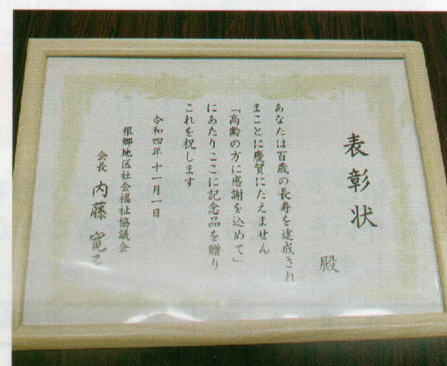 表彰状
殿
あなたは百歳の長寿を達成され
まことに慶賀にたえません
「高齢の方に感謝を込めて」
にあたりここに記念品を贈り
これを祝します
令和四年十一月一日
根郷地区社会福祉協議会
会長 内藤 寛